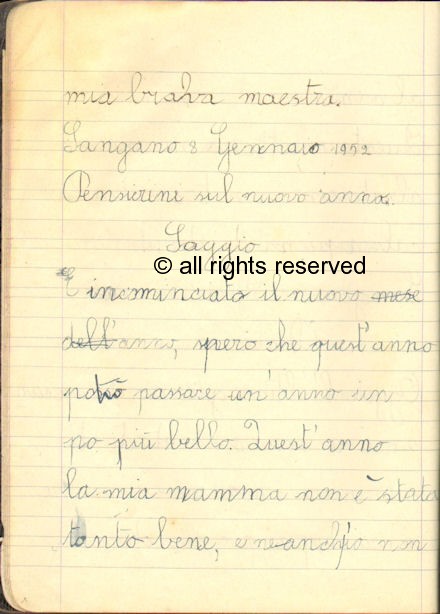 mia brava maestra.
Sangano 8 Gennaio 1952
Pensierini sul nuovo anno.
Saggio
© all rights reserved
È incominciato il nuovo mese
dell'anno, spero che quest'anno
potrò passare un'anno un
po più bello. Quest'anno
la mia mamma non è stata
tanto bene, e neanch'io non